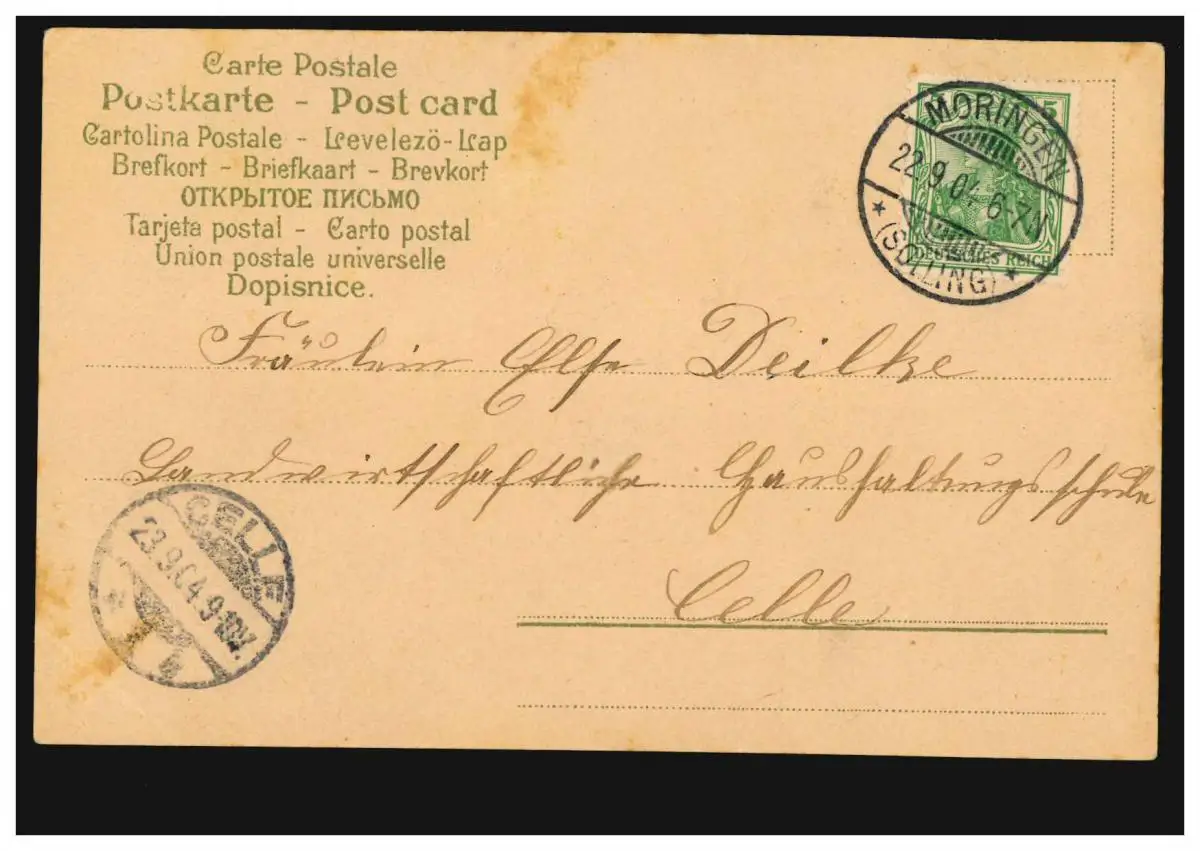 Carte Postale
Postkarte - Post card
Cartolina Postale - Levelezö-Lap
Brefkort - Briefkaart - Brevkort
ОТКРЫТОЕ ПИСЬМО
Tarjeta postal - Carto postal
Union postale universelle
Dopisnice.
5
DEUTSCHES REICH
MORINGEN
22.9.04 6-7N
* (SOLLING) *
Fräulein Else Deilke
Landwirtschaftliche Haushaltungsschule
Celle
CELLE
23.9.04 9-10V.